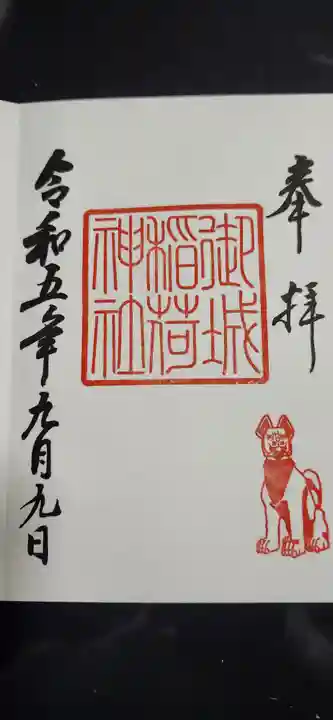 奉拝
御城
稲荷
神社
令和五年九月九日